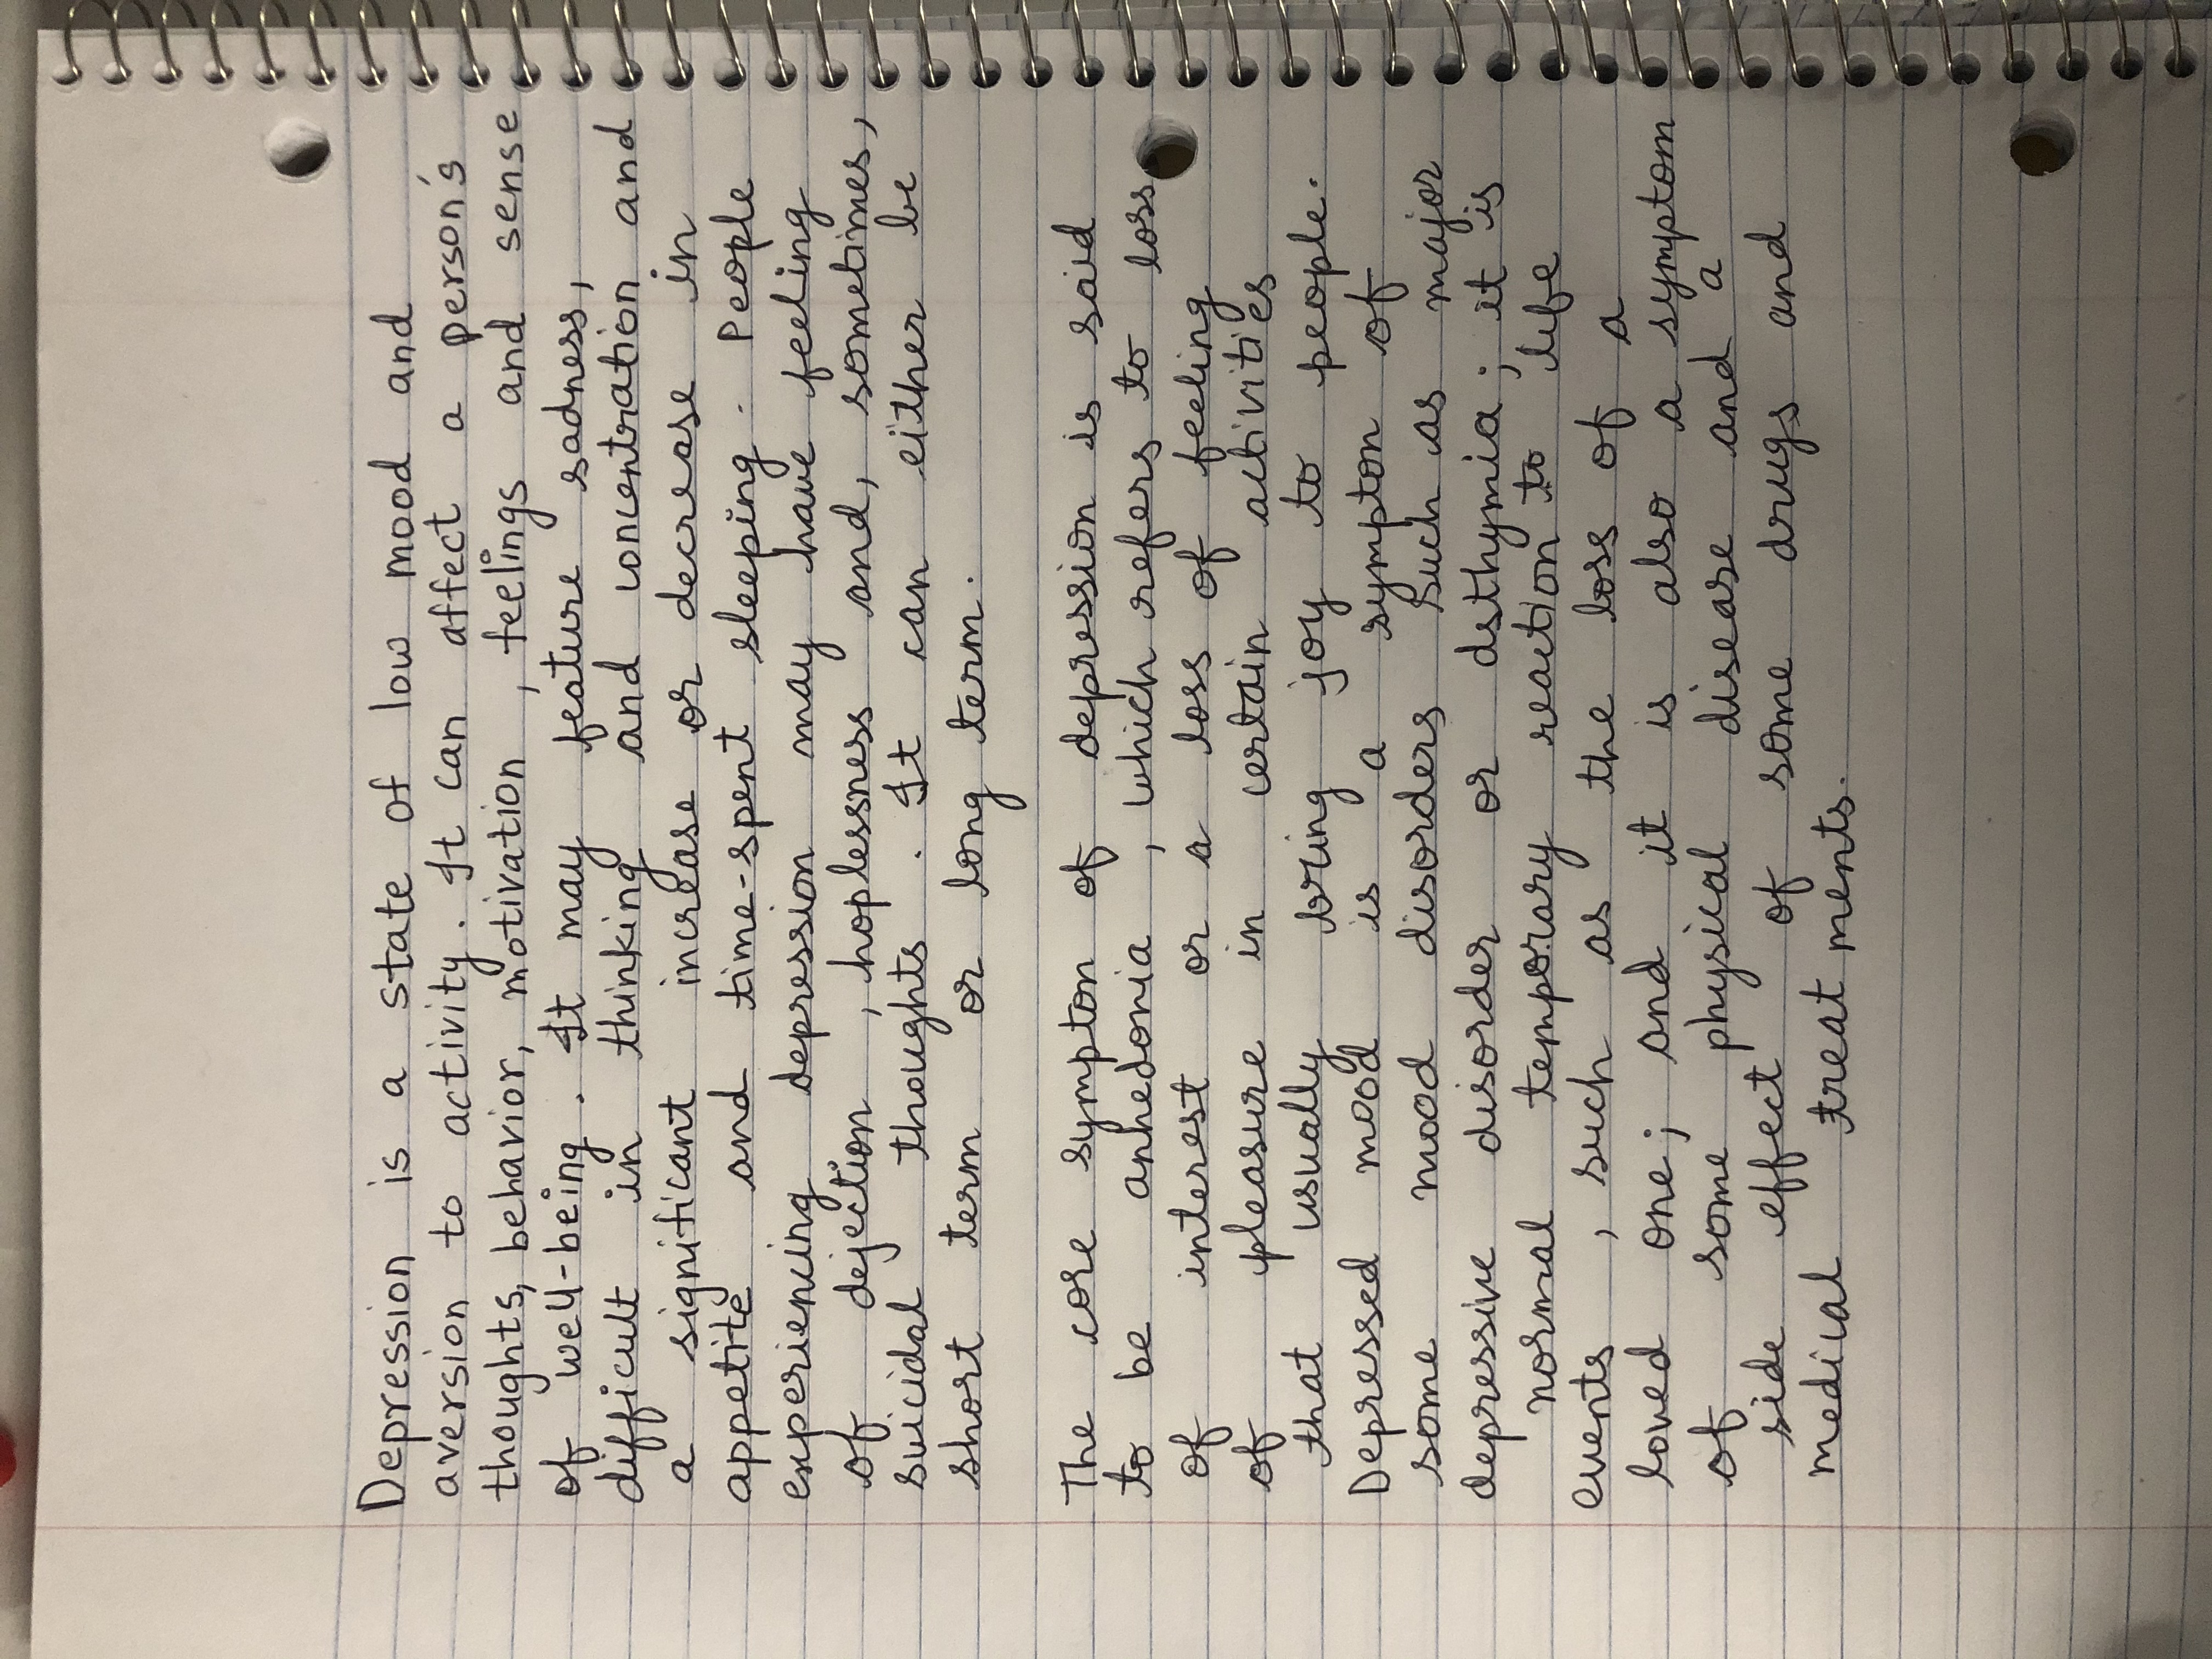 Depression is a state of low mood and
aversion to activity. It can affect a person's
thoughts, behavior, motivation, feelings and sense
of well-being. It may feature sadness,
difficult in thinking and concentration and
a significant increase or decrease in
appetite and time-spent sleeping. People
experiencing depression may have feeling
of dejection, hoplessness and, sometimes,
suicidal thoughts. It can either be
short term or long term.
The core sympton of depression is said
to be anhedonia, which refers to loss
of interest or a loss of feeling
of pleasure in certain activities
that usually bring joy to people.
Depressed mood is a sympton of
some mood disorders such as major
depressive disorder or dsthymia; it is
normal temporary reaction to life
events, such as the loss of a
loved one; and it is also a symptom
of some physical disease and a
side effect of some drugs and
medical treat ments.